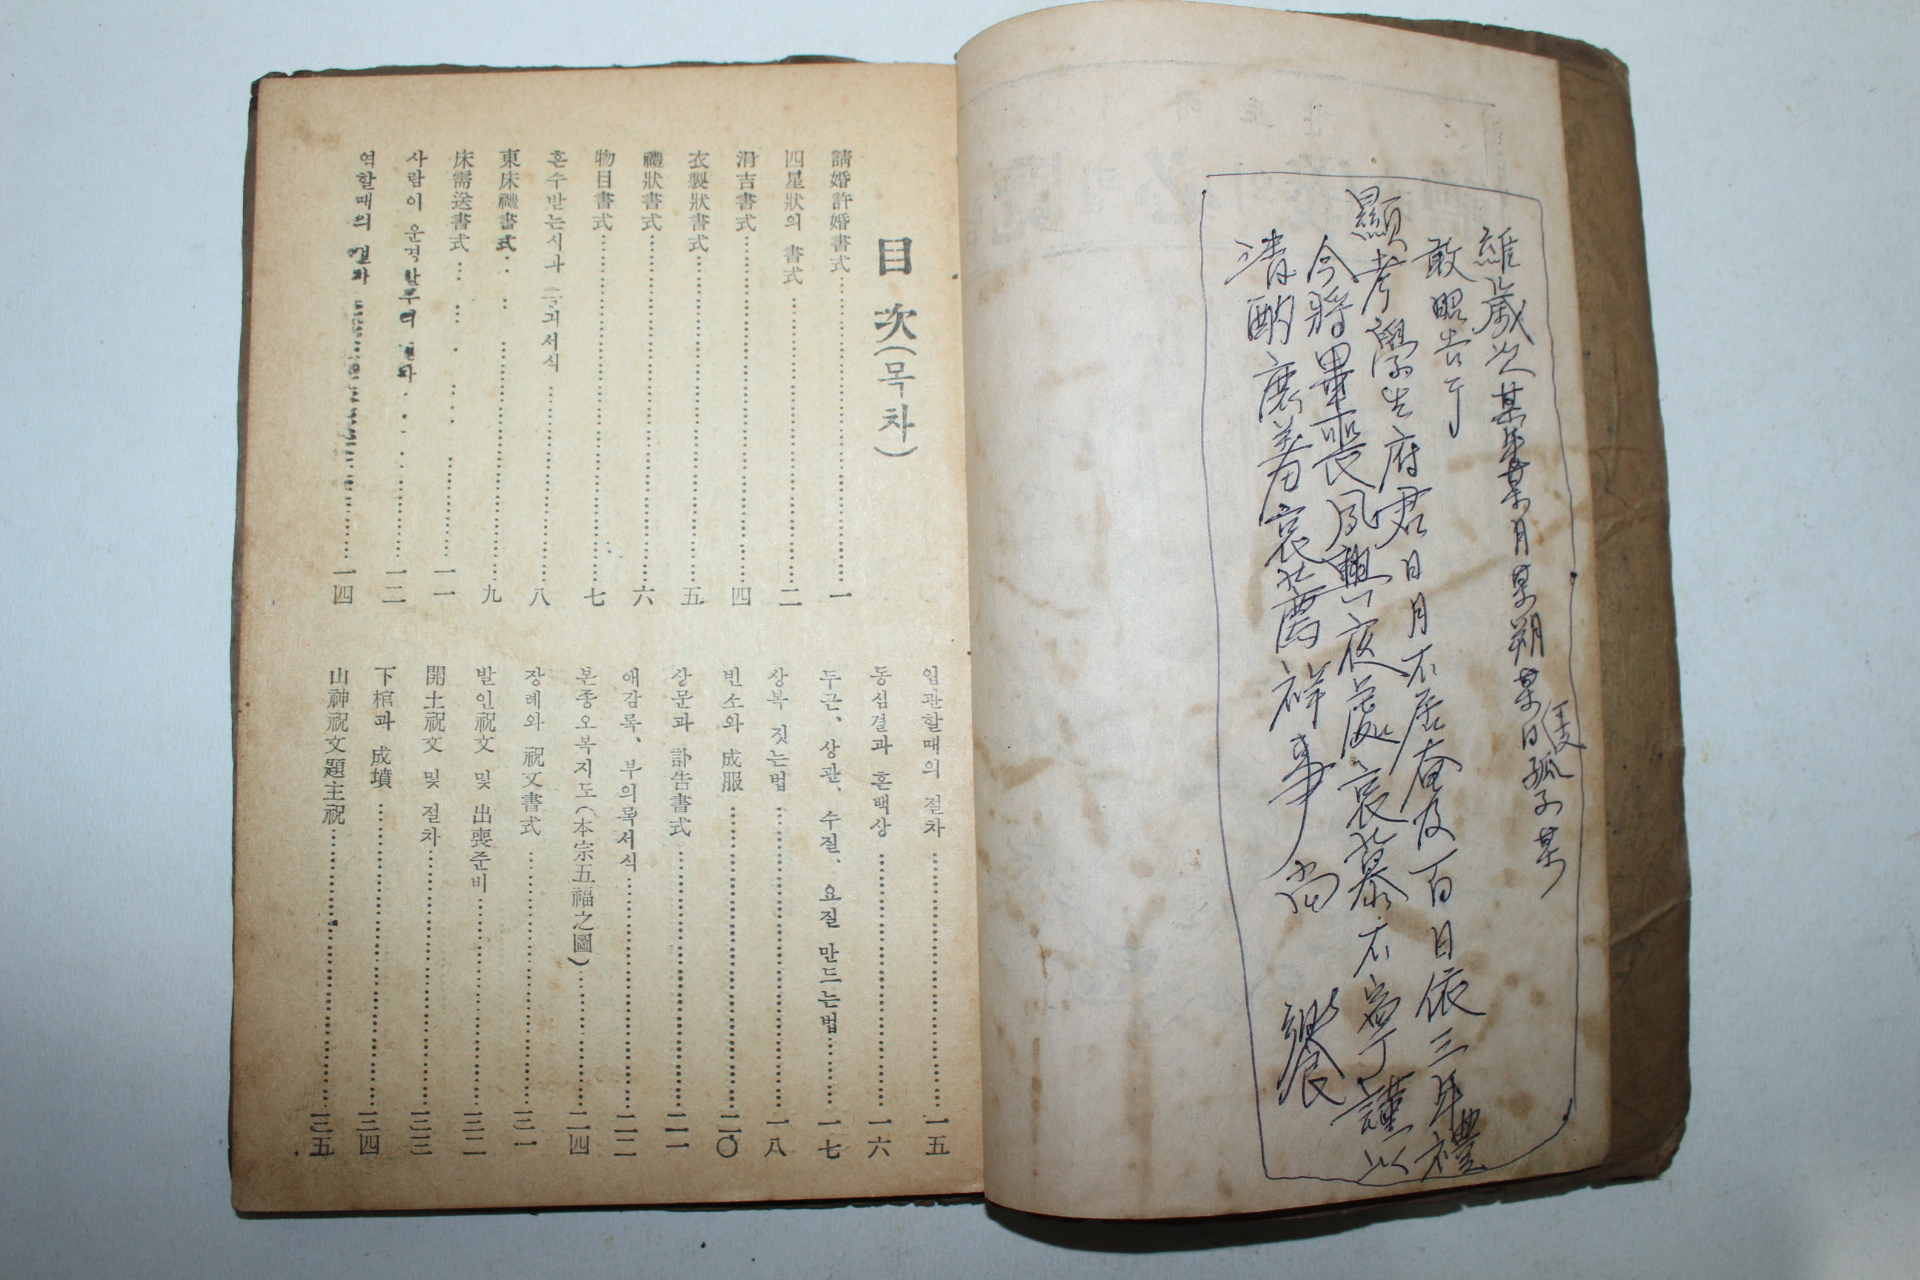 維歲次某年某月某朔某日孤子某
敢昭告于
顯考學生府君日月不居奄及百日依三年禮
今將畢喪夙興夜處哀慕不寧謹以
淸酌庶羞哀薦祥事 尙
饗
目次(목차)
請婚許婚書式 一
四星狀의 書式 二
涓吉書式 四
衣製狀書式 五
禮狀書式 六
物目書式 七
혼수받는시과 서식 八
東床禮書式 九
床需送書式 一一
사람이 운경할 一二
염할때의 절차 一四
입관할때의 절차 一五
동심결과 혼백상 一六
두근, 상관, 수질, 요질 만드는법 一七
상복 짓는법 一八
빈소와 成服 二〇
상문과 訃告書式 二一
애감록, 부의록서식 二二
본종오복지도(本宗五福之圖) 二四
장례와 祝文書式 三一
발인祝文 및 出喪준비 三二
開土祝文 및 절차 三三
下棺과 成墳 三四
山神祝文題主祝 三五